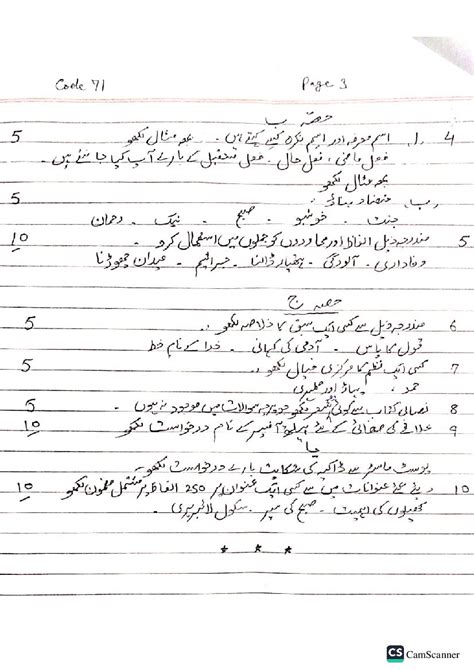 Code 71 Page 3
حصہ ب
4 ا. اسم معرفہ اور اسم نکرہ کسے کہتے ہیں۔ بمعہ مثال لکھو 5
فعل ماضی، فعل حال۔ فعل مستقبل کے بارے آپ کیا جانتے ہیں۔
بمعہ مثال لکھو
ب. متضاد بناؤ۔ 5
جنت۔ خوشبو۔ صبح۔ نیک۔ دھمان
5 مندرجہ ذیل الفاظ اور محاوروں کو جملوں میں استعمال کرو 10
وفاداری۔ آلودگی۔ ہتھیار ڈالنا۔ جراثیم۔ میدان چھوڑنا
حصہ ج
6 مندرجہ ذیل سے کسی ایک سبق کا خلاصہ لکھو۔ 5
قول کا پاس۔ آدمی کی کہانی۔ خدا کے نام خط
7 کسی ایک نظم کا مرکزی خیال لکھو۔ 5
حمد پہاڑ اور گلہری
8 نصابی کتاب سے کوئی شعر لکھو جو سوالات میں موجود نہ ہوں۔ 5
9 علاقے کی صفائی کے لئے ہیلتھ آفیسر کے نام درخواست لکھو 10
یا
پوسٹ ماسٹر سے ڈاکیہ کی شکایت بارے درخواست لکھو۔
10 دیئے گئے عنوانات میں سے کسی ایک عنوان پر 250 الفاظ پر مشتمل مضمون لکھو 10
کھیلوں کی اہمیت۔ صبح کی سیر۔ سکول لائبریری۔
* * *
CS CamScanner